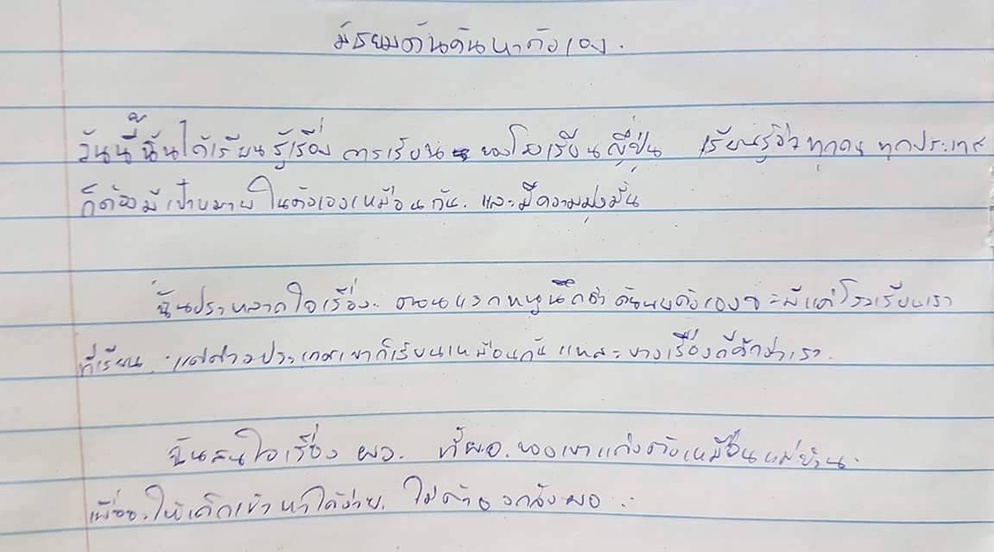 มัธยมต้นค้นหาตัวเอง.
วันนี้ ฉันได้เรียนรู้เรื่อง การเรียน ของโรงเรียนญี่ปุ่น เรียนรู้ว่า ทุกคน ทุกประเทศ
ก็ต้องมีเป้าหมาย ในตัวเองเหมือนกัน. และมีความมุ่งมั่น
ฉันประหลาดใจเรื่อง. ตอนแรกหนูนึกว่า ค้นหาตัวเองจะมีแค่โรงเรียนเรา
ที่เรียน. แต่ต่างประเทศเขาก็เรียนเหมือนกัน และบางเรื่องดีกว่าเรา.
ฉันสนใจเรื่อง ผอ. ที่ผอ.ของเขาแต่งตัวเหมือนแม่บ้าน.
เพื่อจะให้เด็กเข้าหาได้ง่าย. ไม่ต้องกลัวผอ.